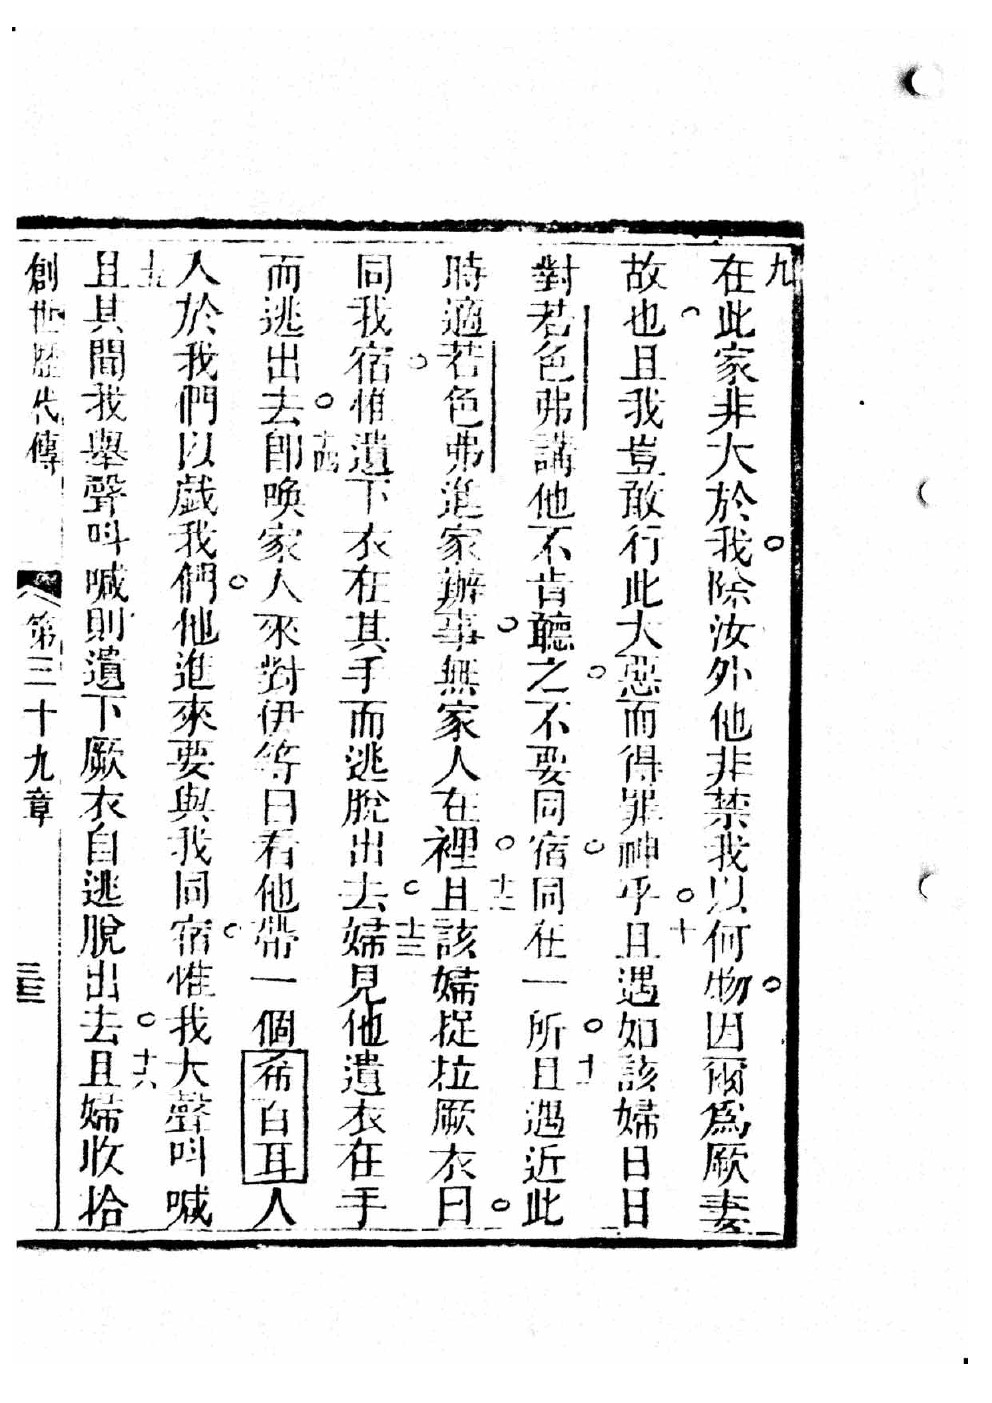 九在此家非大於我。除汝外他非禁我以何物。因爾為厥妻
故也。且我豈敢行此大惡而得罪神乎。十且遇如該婦日日
對若色弗講他不肯聽之。不要同宿。同在一所。十一且遇近此
時適若色弗進家辦事。無家人在裡。十二且該婦捉拉厥衣曰。
同我宿。惟遺下衣在其手而逃脫出去。十三婦見他遺衣在手
而逃出去。十四即喚家人來對伊等曰看他帶一個希百耳人
人於我們以戲我們。他進來要與我同宿。惟我大聲呌喊
十五且其聞我舉聲呌喊則遺下厥衣自逃脫出去。十六且婦收拾
創世歷代傳 第三十九章 三五三